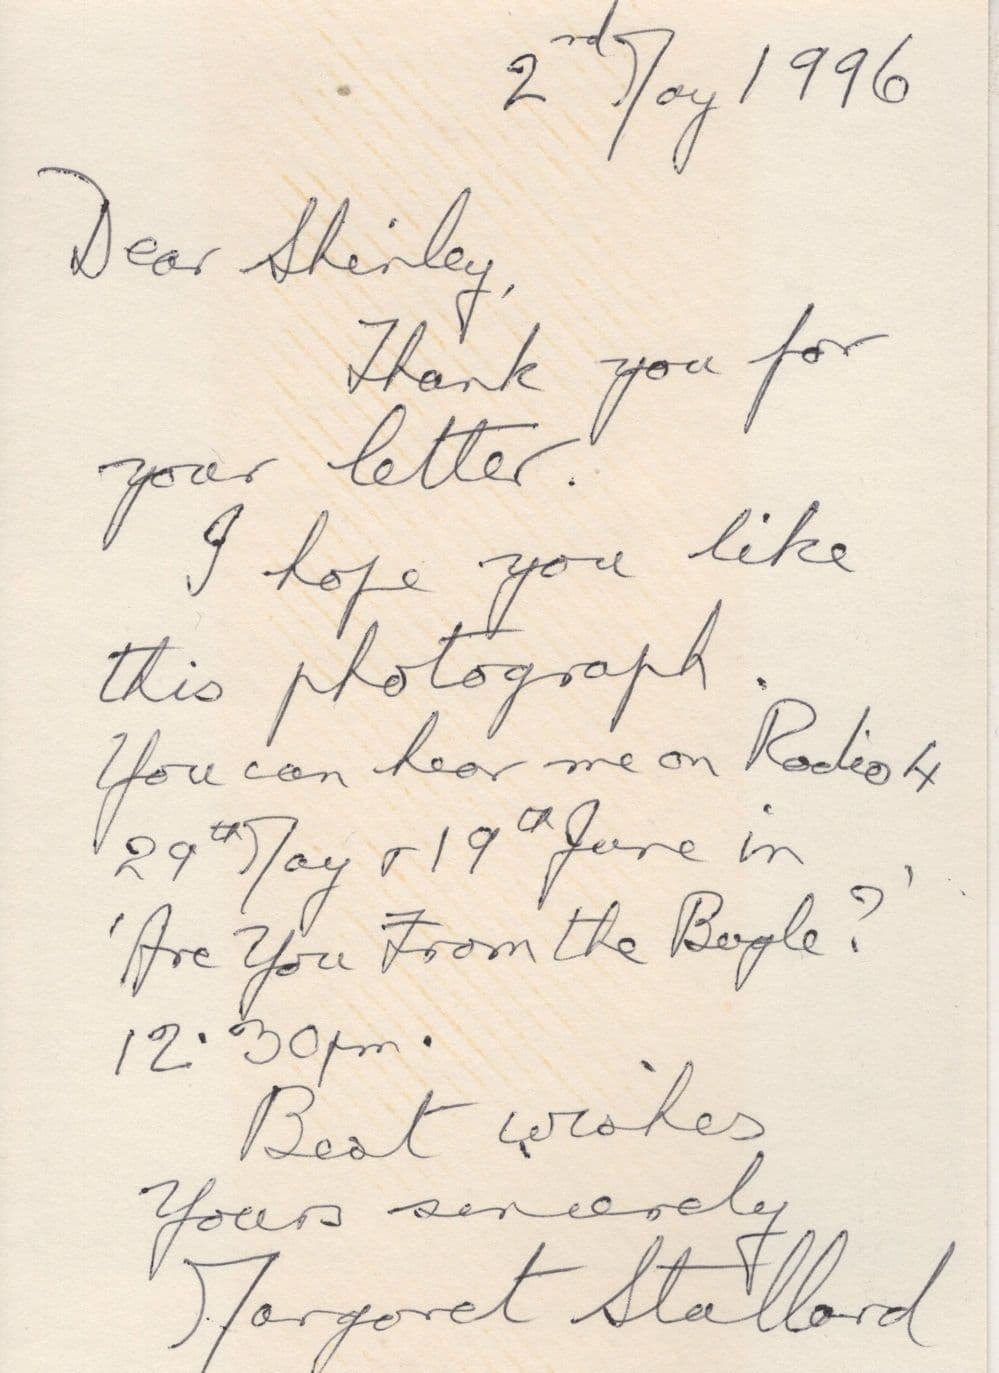 2rd May 1996
Dear Shirley,
Thank you for
your letter.
I hope you like
this photograph.
You can hear me on Radio 4
29th May & 19th June in
'Are You From the Bugle?'
12.30pm.
Best wishes
Yours sincerely
Margaret Stallard